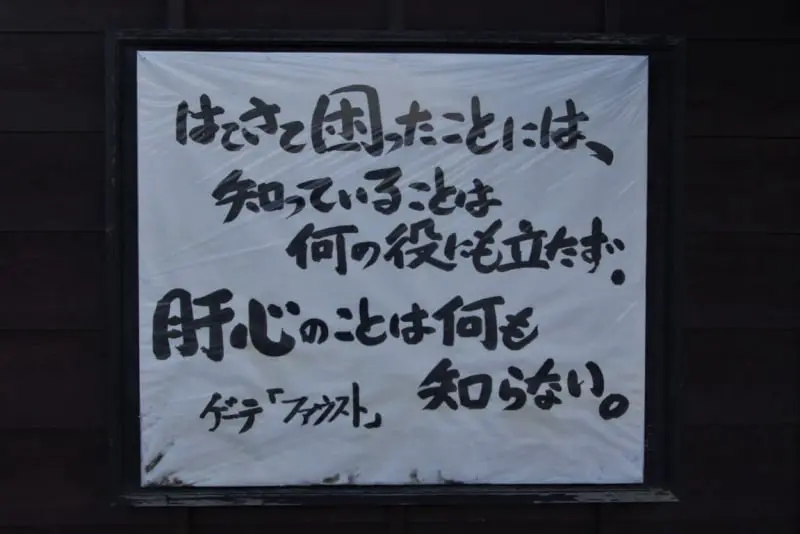 はてさて困ったことには、
知っていることは
何の役にも立たず.
肝心のことは何も
知らない。
ゲーテ「ファウスト」